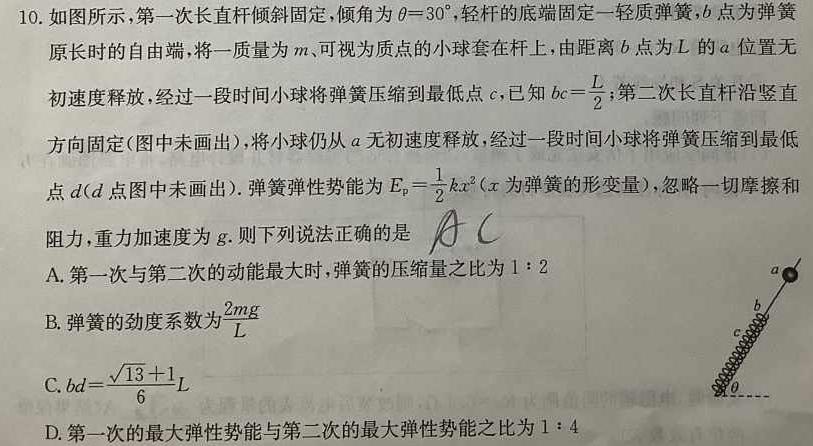 10. 如图所示,第一次长直杆倾斜固定,倾角为 θ=30°,轻杆的底端固定一轻质弹簧,b 点为弹簧
原长时的自由端,将一质量为 m、可视为质点的小球套在杆上,由距离 b 点为 L 的 a 位置无
初速度释放,经过一段时间小球将弹簧压缩到最低点 c,已知 bc=L/2;第二次长直杆沿竖直
方向固定(图中未画出),将小球仍从 a 无初速度释放,经过一段时间小球将弹簧压缩到最低
点 d(d 点图中未画出). 弹簧弹性势能为 Eₚ=1/2kx²(x 为弹簧的形变量),忽略一切摩擦和
阻力,重力加速度为 g. 则下列说法正确的是 AC
A. 第一次与第二次的动能最大时,弹簧的压缩量之比为 1∶2
B. 弹簧的劲度系数为2mg/L
C. bd=(√13+1)/6 L
D. 第一次的最大弹性势能与第二次的最大弹性势能之比为 1∶4
a
b
c
θ